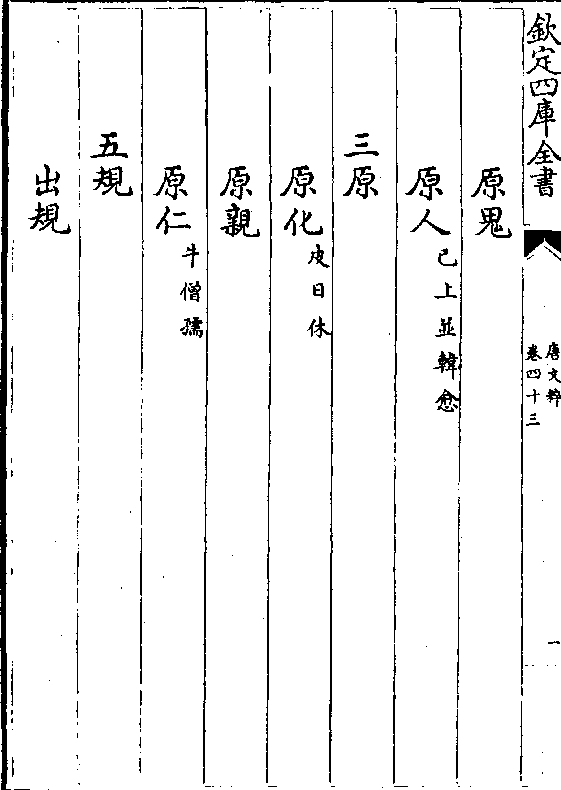 欽定四庫全書
唐文粹
卷四十三
一
原鬼
原人已上並韓愈
三原
原化皮日休
原親
原仁牛僧孺
五規
出規